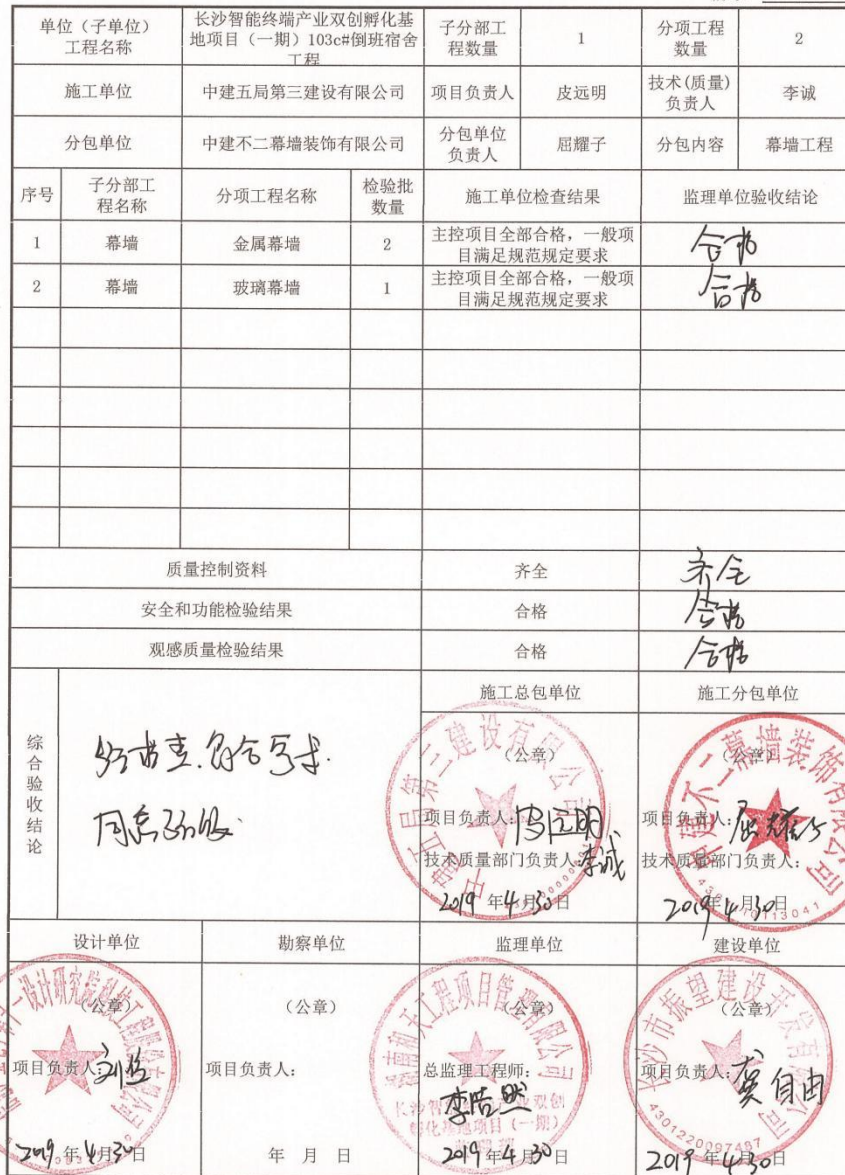 单位（子单位）
工程名称
长沙智能终端产业双创孵化基
地项目（一期）103c#倒班宿舍
工程
子分部工
程数量
1
分项工程
数量
2
施工单位
中建五局第三建设有限公司
项目负责人
皮远明
技术(质量)
负责人
李诚
分包单位
中建不二幕墙装饰有限公司
分包单位
负责人
屈耀子
分包内容
幕墙工程
序号
子分部工
程名称
分项工程名称
检验批
数量
施工单位检查结果
监理单位验收结论
1
幕墙
金属幕墙
2
主控项目全部合格，一般项
目满足规范规定要求
合格
2
幕墙
玻璃幕墙
1
主控项目全部合格，一般项
目满足规范规定要求
合格
质量控制资料
齐全
齐全
安全和功能检验结果
合格
合格
观感质量检验结果
合格
合格
综合验收结论
同意验收
施工总包单位
（公章）
中建五局第三建设有限公司
项目负责人：皮远明
技术质量部门负责人：李诚
2019年4月30日
施工分包单位
（公章）
中建不二幕墙装饰有限公司
项目负责人：屈耀子
技术质量部门负责人：
2019年4月30日
设计单位
（公章）
项目负责人：
2019年4月30日
勘察单位
（公章）
项目负责人：
年 月 日
监理单位
（公章）
总监理工程师：
李浩然
长沙智能终端产业双创
孵化基地项目（一期）
2019年4月30日
建设单位
（公章）
长沙市振望建设开发有限公司
项目负责人：龚自由
4301220097487
2019年4月30日